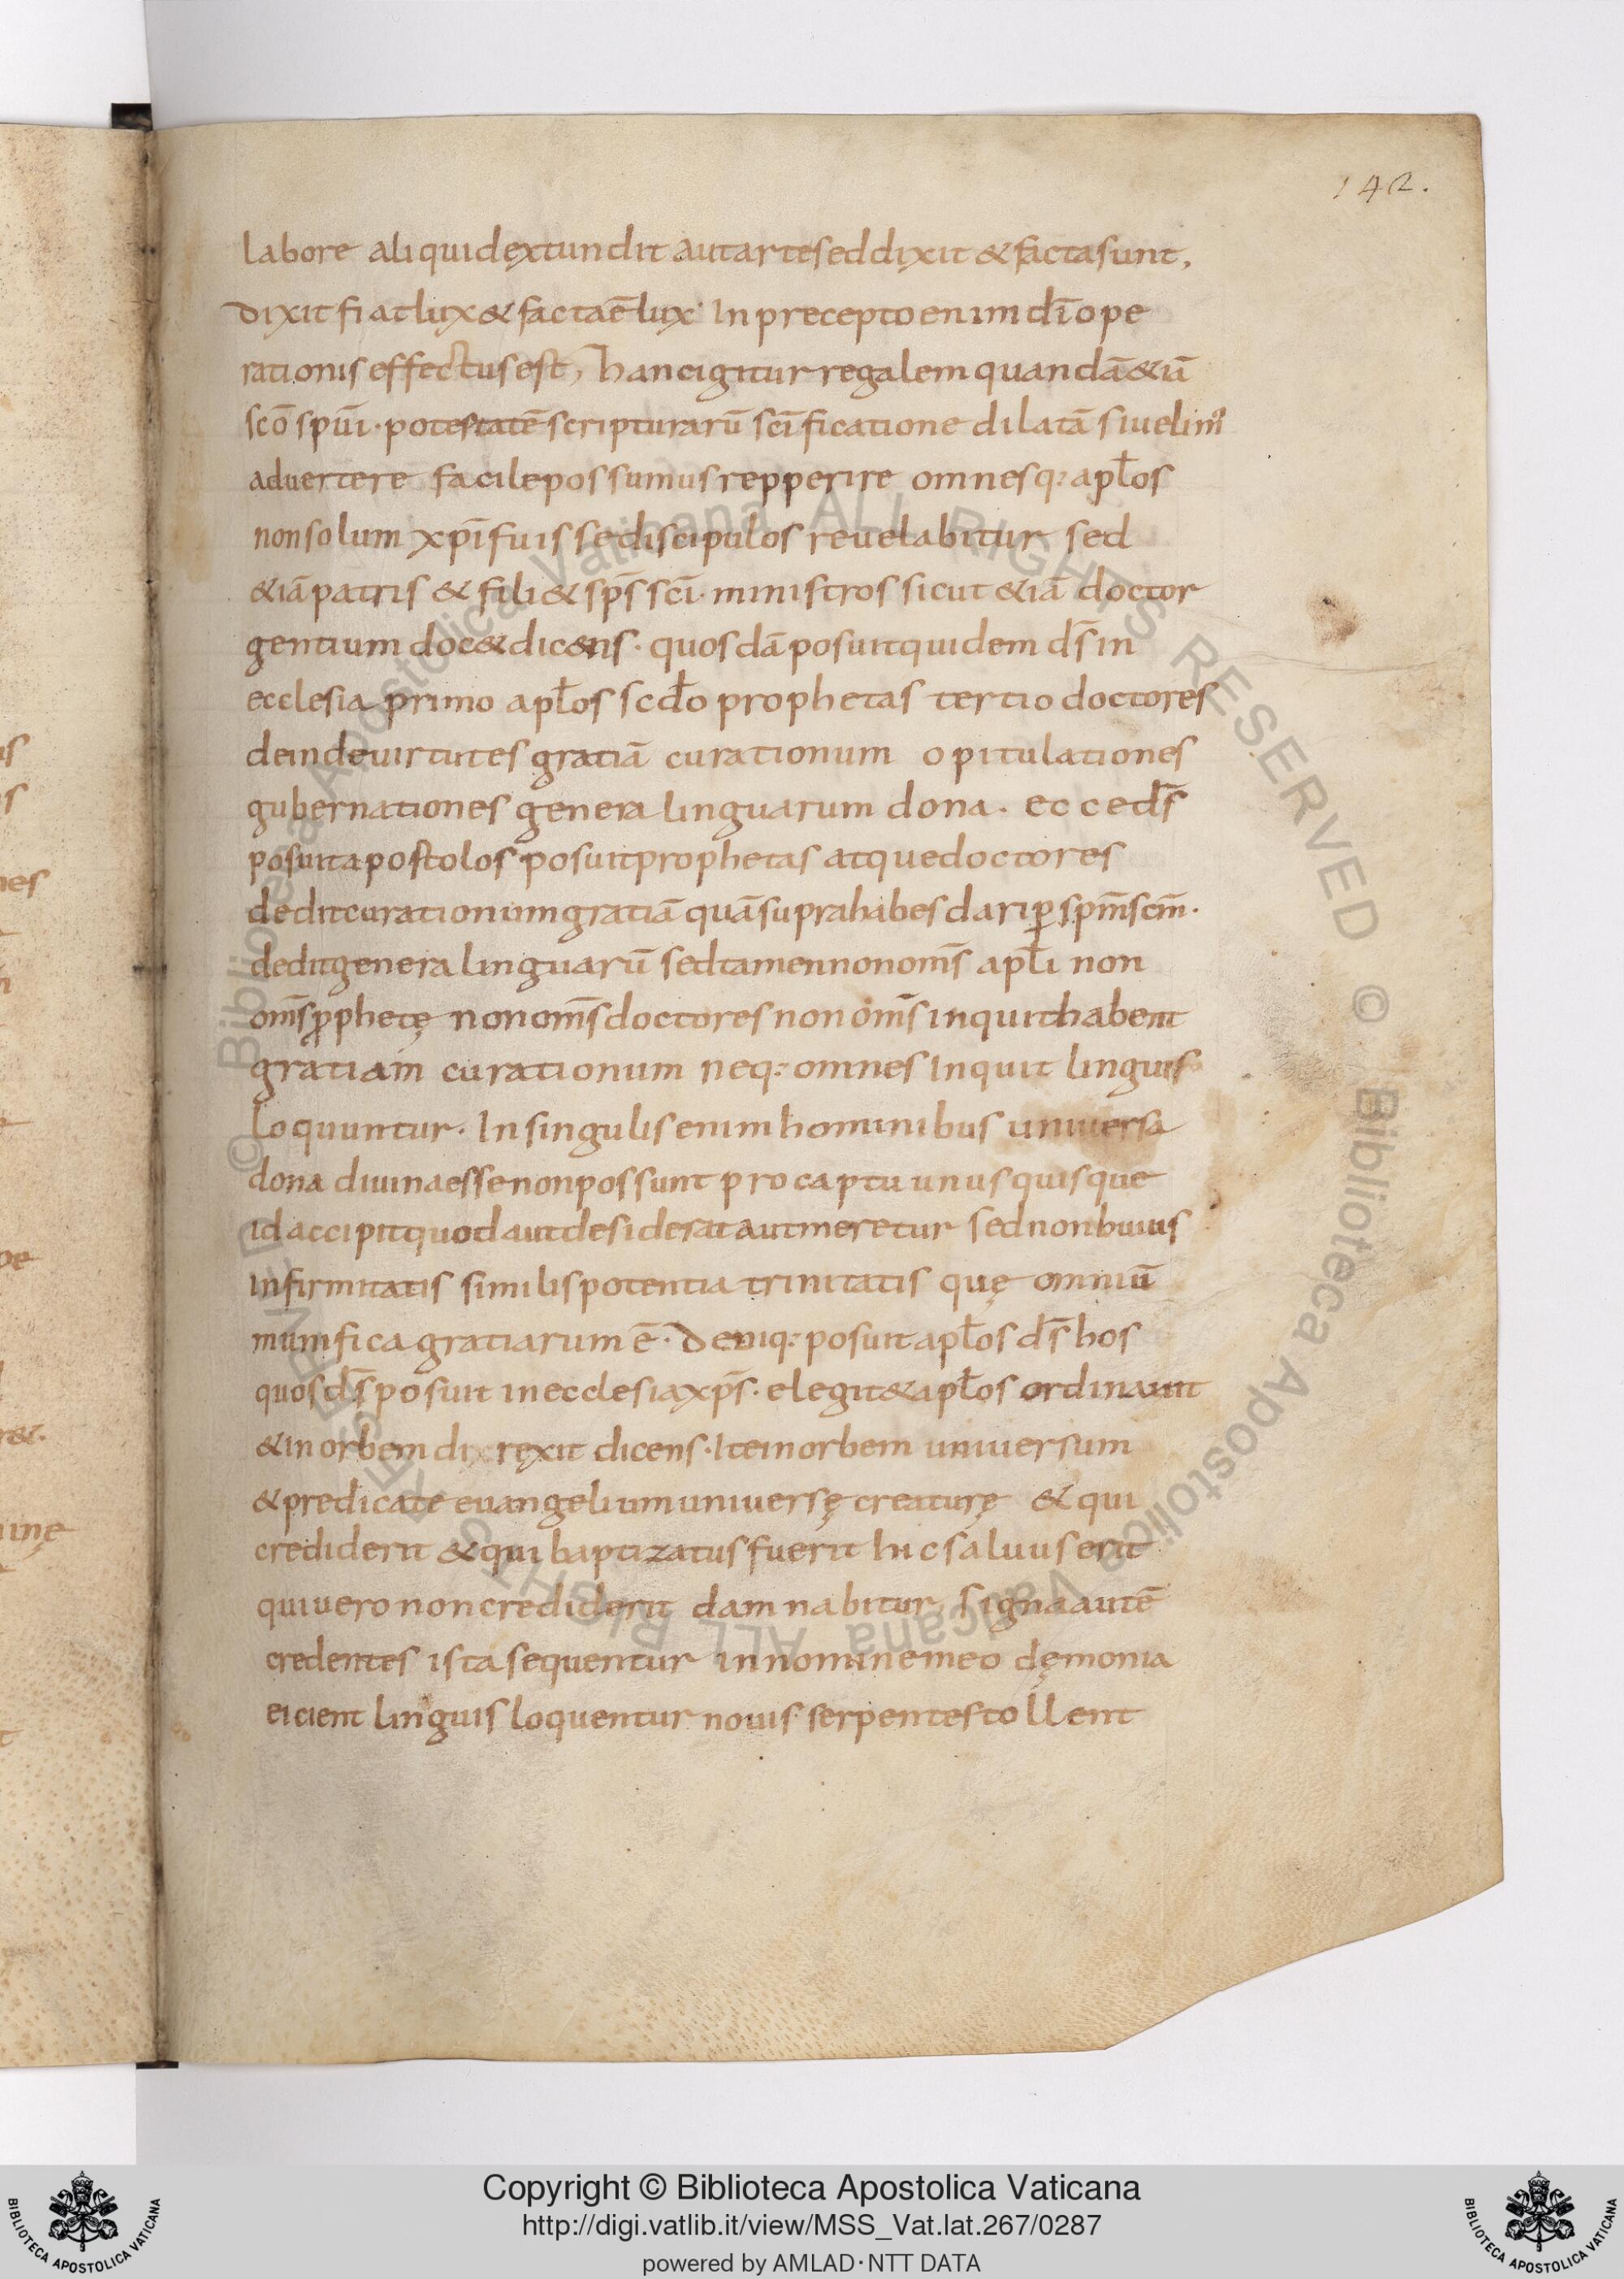 142.
labore aliquid extundit aut arte sed dixit & facta sunt,
dixit fiat lux & facta ē lux. In precepto enim dī ope
rationis effectus est, hanc igitur regalem quandā &iā
scō spūi. potestatē scripturarū scīficatione dilatā si uelim᾽
aduertere facile possumus repperire omnesq: apłos
non solum xpī fuisse discipulos reuelabitur sed
&iā patris & fili & sp̄s scī. ministros sicut &iā doctor
gentium doc& dicens. quosdā posuit quidem ds̄ in
ecclesia primo apłos scdo prophetas tertio doctores
deinde uirtutes gratiā curationum opitulationes
gubernationes genera linguarum dona. ecce ds̄
posuit apostolos posuit prophetas atque doctores
dedit curationum gratiā quā supra habes dari ꝑ spm̄ scm̄.
dedit genera linguarū sed tamen non oms̄ apłi non
oms̄ ꝓphetę non oms̄ doctores non oms̄ inquit habent
gratiam curationum neq: omnes inquit linguis
loquuntur. In singulis enim hominibus uniuersa
dona diuina esse non possunt pro captu unusquisque
id accipit quod aut desiderat aut meretur sed non huius
infirmitatis similis potentia trinitatis quę omniū
munifica gratiarum ē. Deniq: posuit apłos ds̄ hos
quos ds̄ posuit in ecclesia xp̄s. elegit & apłos ordinauit
& in orbem di rexit dicens. Ite in orbem uniuersum
& predicate euangelium uniuersę creaturę & qui
crediderit & qui baptizatus fuerit hic saluus erit
qui uero non crediderit damnabitur, signa autē
credentes ista sequentur in nomine meo dęmonia
eicient linguis loquentur nouis serpentes tollent
Copyright © Biblioteca Apostolica Vaticana
http://digi.vatlib.it/view/MSS_Vat.lat.267/0287
powered by AMLAD·NTT DATA
BIBLIOTECA APOSTOLICA VATICANA
BIBLIOTECA APOSTOLICA VATICANA
© Biblioteca Apostolica Vaticana ALL RIGHTS RESERVED © Biblioteca Apostolica Vaticana ALL RIGHTS RESERVED